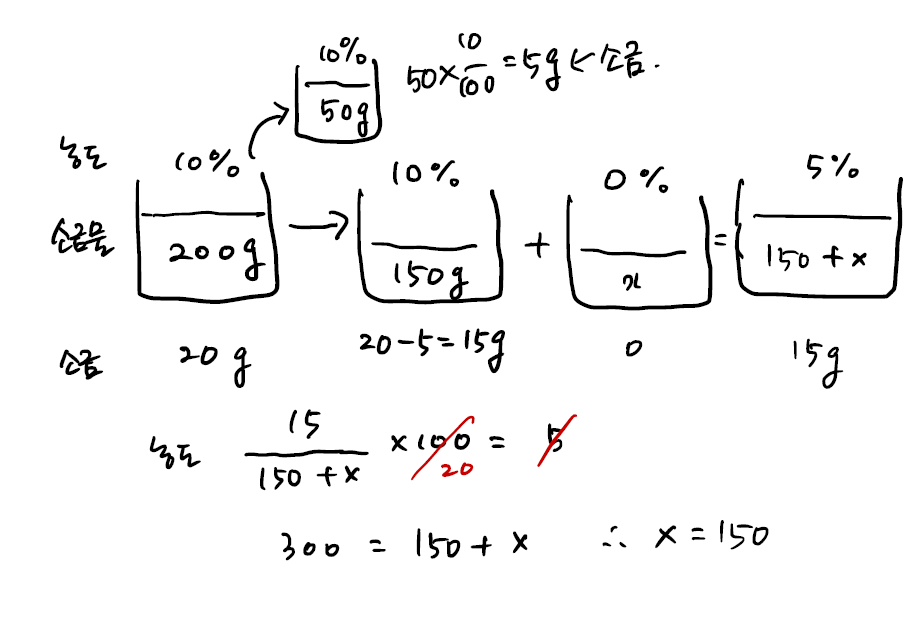 10% 50×10/100=5g←소금.
50g
농도 10% 10% 0% 5%
소금물 200g → 150g + x = 150+x
소금 20g 20-5=15g 0 15g
농도 15/150+x ×100 = 5
20
300 = 150+x ∴ x=150